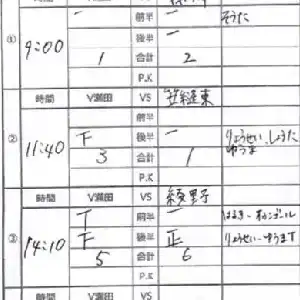 ① 9:00 一 前半 一 そうた
後半 一
1 合計 2
P.K
時間 V瀬田 VS 笠縫東
② 11:40 前半
下 後半 一 りょうせい、しょうた
ゆうま
3 合計 1
P.K
時間 V瀬田 VS 綾里子
③ 14:10 T 前半 一 はるき・オウンゴール
下 後半 正 りょうせい・ゆうま T
5 合計 6
P.K
時間 V瀬田 VS